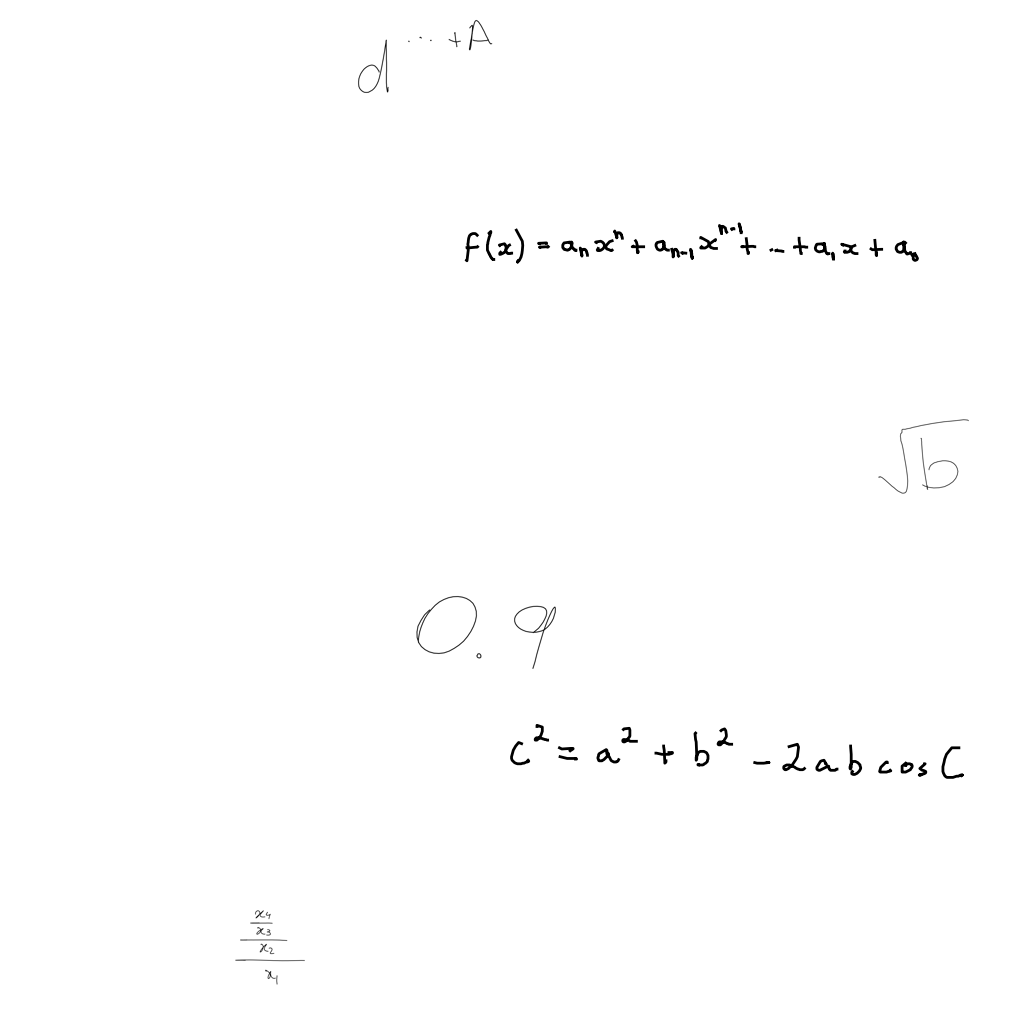 d^{\cdots + A}
f(x) = a_n x^n + a_{n-1} x^{n-1} + \ldots + a_1 x + a_0
\sqrt{b}
0.9
c^2 = a^2 + b^2 - 2ab \cos C
\frac{\frac{\frac{x_4}{x_3}}{x_2}}{x_1}